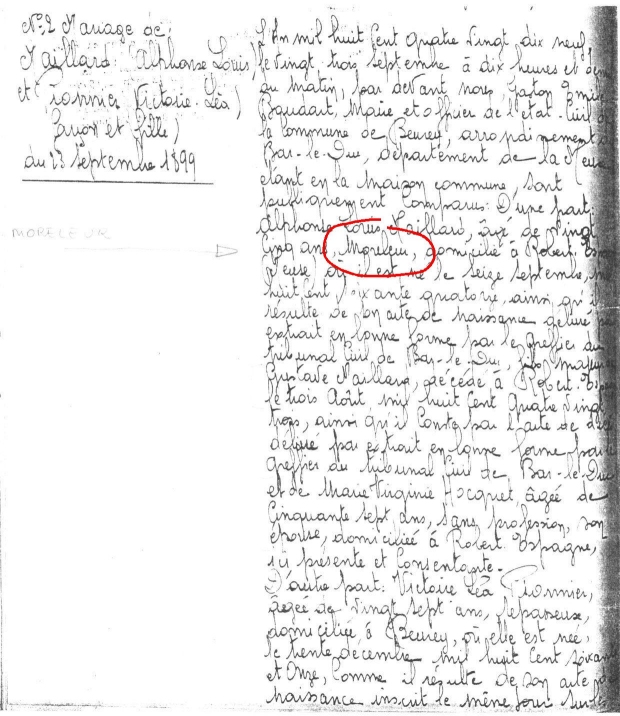 N° 2 Mariage de :
Maillard (Alphonse Louis)
et Pionnier (Victoire Léa)
Garçon et fille)
du 23 Septembre 1899
MORELEUR
L'An mil huit Cent quatre vingt dix neuf,
le vingt trois Septembre à dix heures et
du matin, par devant nous, Gaston Emile
Baudart, Maire et officier de l'état-Civil de
la commune de Beurey, arrondissement de
Bar-le-Duc, département de la Meuse
étant en la maison commune, sont
publiquement Comparus : D'une part :
Alphonse Louis Maillard, âgé de vingt
Cinq ans, Moreleur, domicilié à Robert-Es
Meuse, où il est né le seize septembre, mil
huit Cent soixante quatorze, ainsi qu'il
résulte de son acte de naissance délivré par
extrait en bonne forme par le greffier du
tribunal Civil de Bar-le-Duc, fils majeur
Gustave Maillard, décédé à Robert-Espa
le trois Août mil huit Cent quatre vingt
trois, ainsi qu'il Conste par l'acte de déc
délivré par extrait en bonne forme par le
greffier du tribunal Civil de Bar-le-Duc
et de Marie Virginie Hocquet, âgée de
Cinquante Sept ans, Sans profession, son
épouse, domiciliée à Robert-Espagne,
ici présente et Consentante.
D'autre part : Victoire Léa Pionnier,
âgée de vingt Sept ans, repasseuse,
domiciliée à Beurey, où elle est née,
le trente décembre mil huit Cent soixan
et Onze, Comme il résulte de son acte de
naissance inscrit le même jour sur les